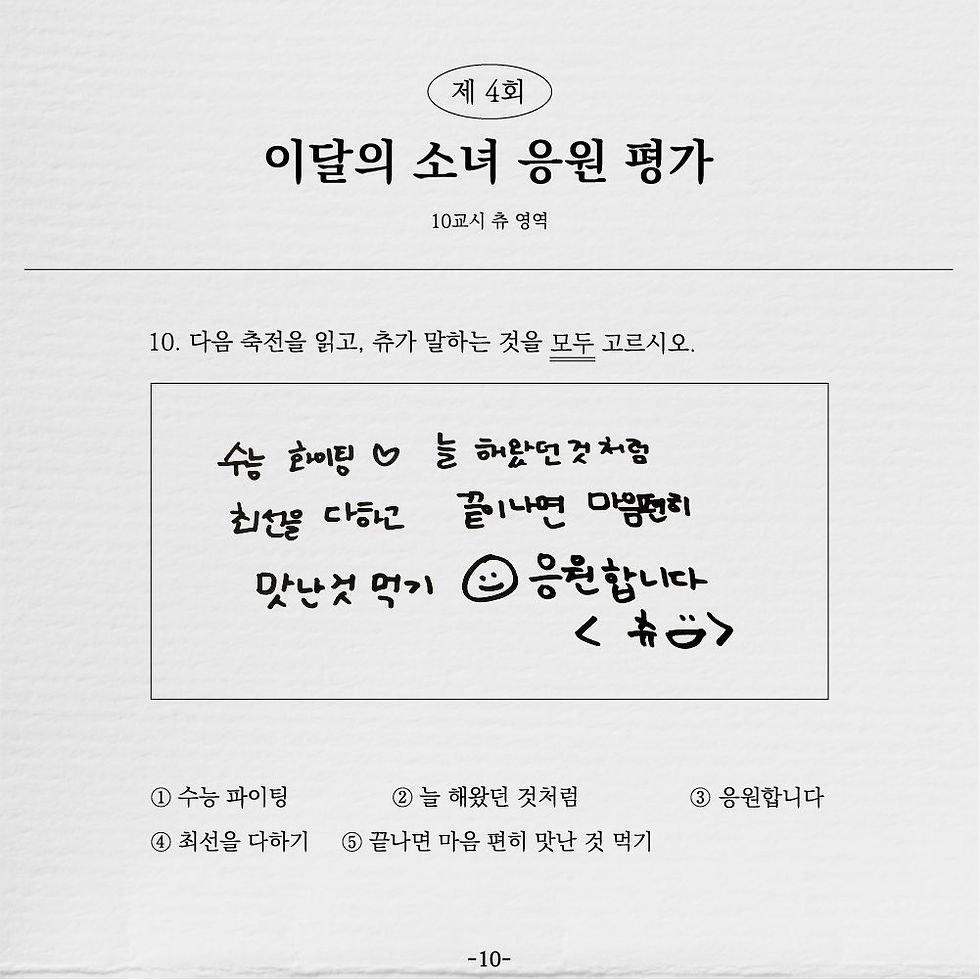 제 4회
이달의 소녀 응원 평가
10교시 츄 영역
10. 다음 축전을 읽고, 츄가 말하는 것을 모두 고르시오.
수능 화이팅 ♡ 늘 해왔던 것처럼
최선을 다하고 끝이나면 마음편히
맛난것 먹기 응원합니다
< 츄 >
① 수능 파이팅 ② 늘 해왔던 것처럼 ③ 응원합니다
④ 최선을 다하기 ⑤ 끝나면 마음 편히 맛난 것 먹기
-10-